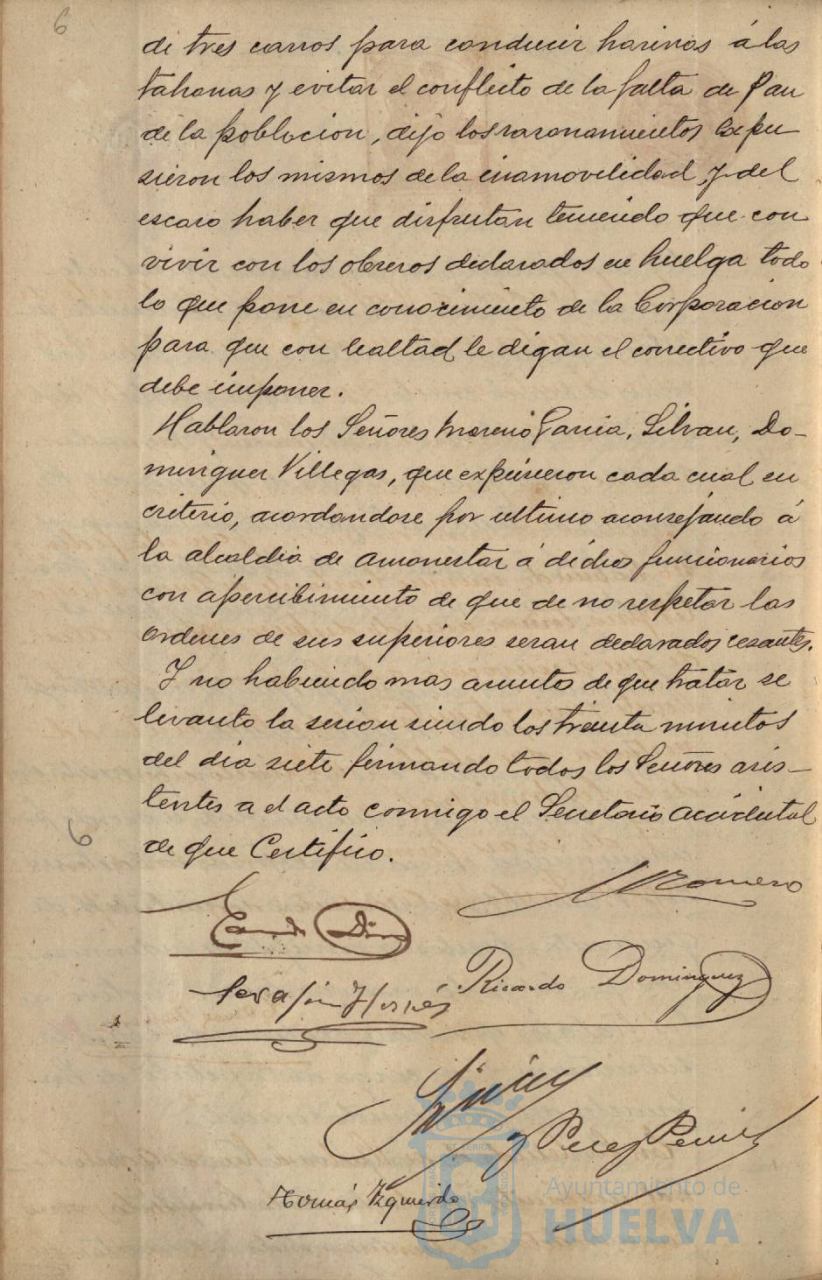 6
de tres carros para conducir harinas á las
tahonas y evitar el conflicto de la falta de Pan
de la poblacion, dijo los razonamientos Expu
sieron los mismos de la inamovilidad, y del
escaso haber que disfrutan teniendo que con
vivir con los obreros declarados en huelga todo
lo que pone en conocimiento de la Corporacion
para que con lealtad le digan el correctivo que
debe imponer.
Hablaron los Señores Moreno Garcia, Silvan, Do-
minguez Villegas, que expusieron cada cual su
criterio, acordandose por ultimo aconsejando á
la alcaldia de amonestar á dichos funcionarios
con apercibimiento de que de no respetar las
ordenes de sus superiores seran declarados cesantes.
Y no habiendo mas asuntos de que tratar se
levanto la sesion siendo los treinta minutos
del dia siete firmando todos los Señores asis-
tentes a el acto conmigo el Secretario accidental
6
de que Certifico.
Romero
Diaz
Ricardo Dominguez
Serafin
y Perez
Tomás Izquierdo
Ayuntamiento de
HUELVA